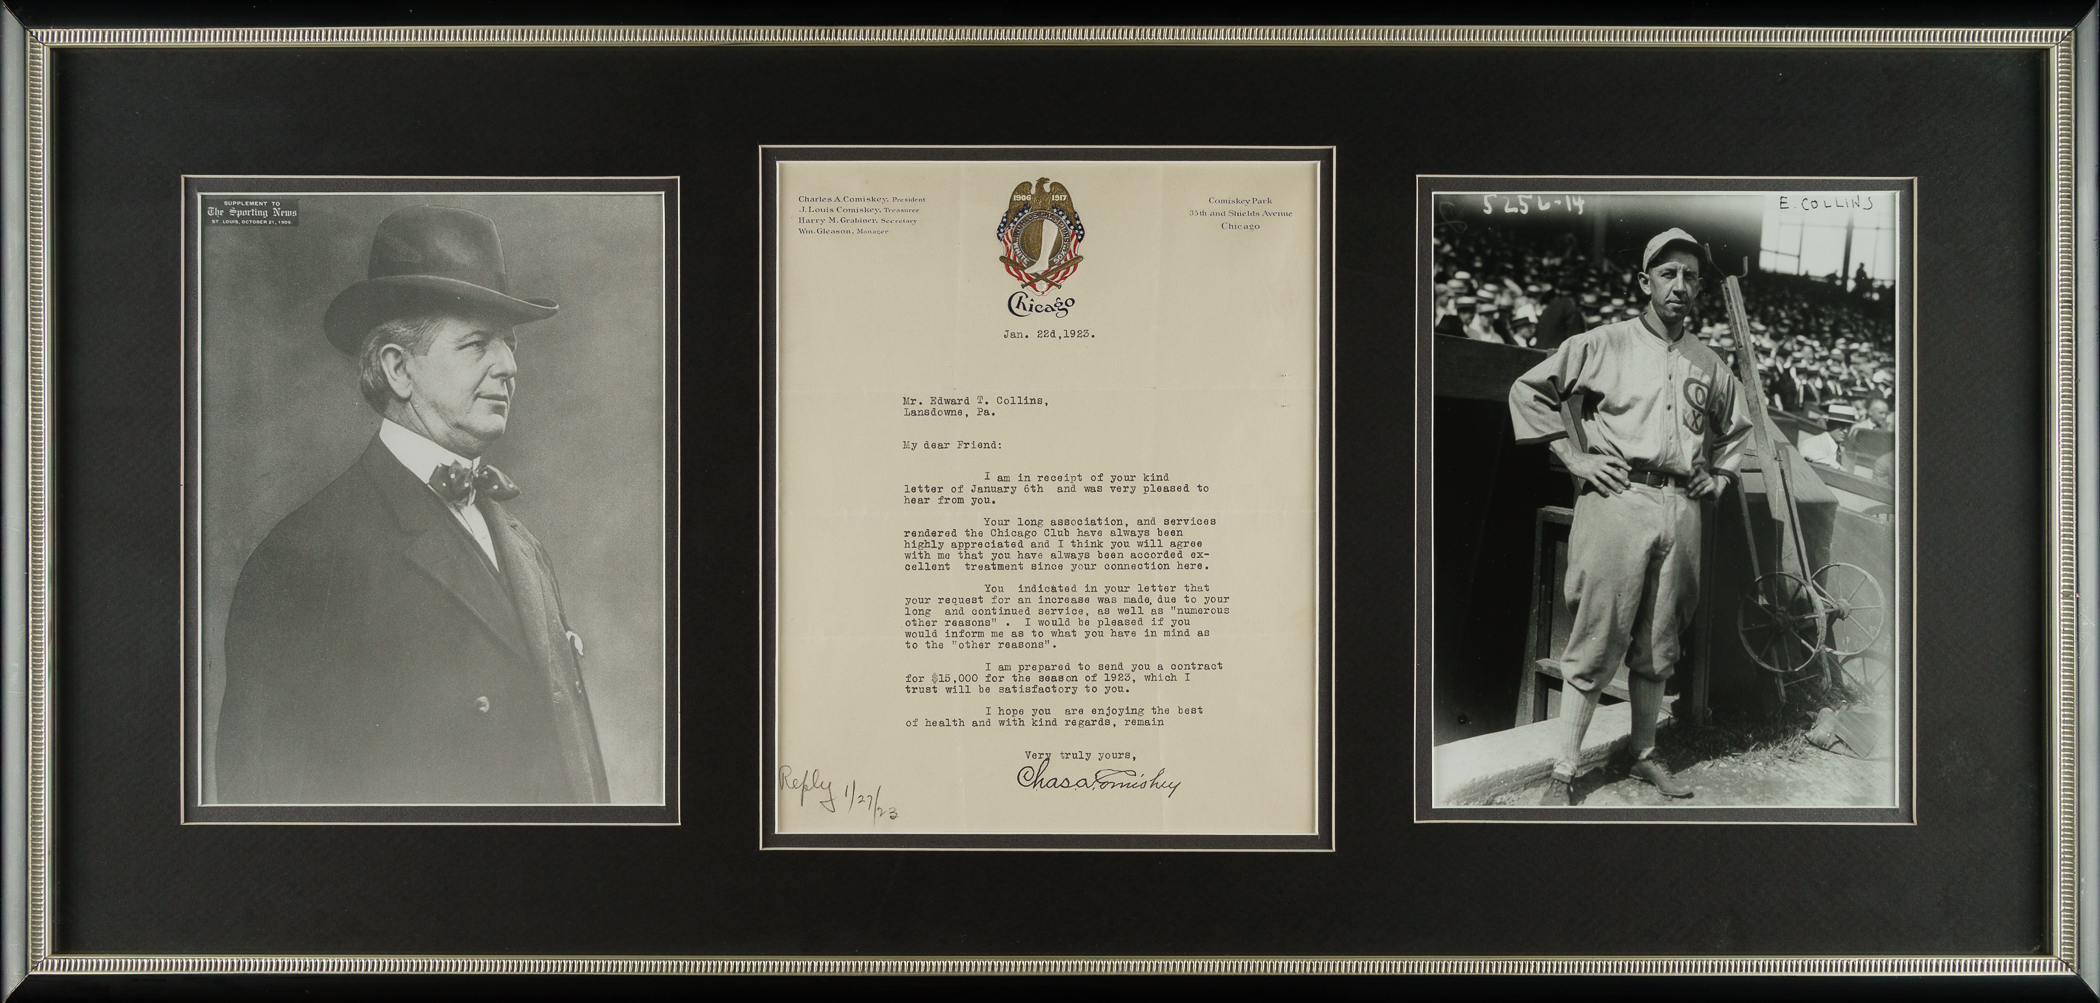 SUPPLEMENT TO
The Sporting News
ST. LOUIS, OCTOBER 21, 1909.
Charles A. Comiskey, President
J. Louis Comiskey, Treasurer
Harry M. Grabiner, Secretary
Wm. Gleason, Manager
1906 1917
WHITE SOX
Chicago
Comiskey Park
35th and Shields Avenue
Chicago
Jan. 22d,1923.
Mr. Edward T. Collins,
Lansdowne, Pa.
My dear Friend:
I am in receipt of your kind
letter of January 6th and was very pleased to
hear from you.
Your long association, and services
rendered the Chicago Club have always been
highly appreciated and I think you will agree
with me that you have always been accorded ex-
cellent treatment since your connection here.
You indicated in your letter that
your request for an increase was made, due to your
long and continued service, as well as "numerous
other reasons" . I would be pleased if you
would inform me as to what you have in mind as
to the "other reasons".
I am prepared to send you a contract
for $15,000 for the season of 1923, which I
trust will be satisfactory to you.
I hope you are enjoying the best
of health and with kind regards, remain
Very truly yours,
Chas a Comiskey
Reply 1/27/23
5256-14
E. COLLINS
SOX